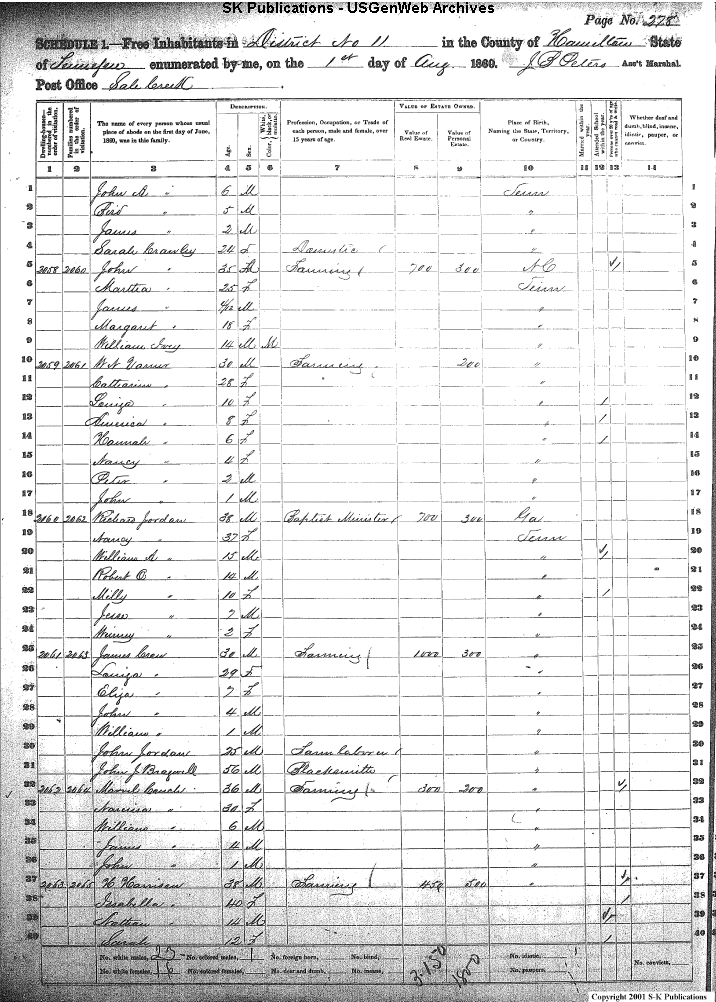 SK Publications - USGenWeb Archives
Page No. 278
SCHEDULE 1.—Free Inhabitants in District No 11 in the County of Hamilton State
of Tennessee enumerated by me, on the 1st day of Aug 1860. Ass't Marshal.
Post Office Sale Creek
DESCRIPTION. VALUE OF ESTATE OWNED.
Dwelling-houses—numbered in the order of visitation. Families numbered in the order of visitation. The name of every person whose usual place of abode on the first day of June, 1860, was in this family. Age. Sex. Color, White, black, or mulatto. Profession, Occupation, or Trade of each person, male and female, over 15 years of age. Value of Real Estate. Value of Personal Estate. Place of Birth, Naming the State, Territory, or Country. Married within the year. Attended School within the year. Whether deaf and dumb, blind, insane, idiotic, pauper, or convict.
1 2 3 4 5 6 7 8 9 10 11 12 13 14
1 John A. " 6 M Tenn 1
2 " 5 M " 2
3 James " 2 M " 3
4 Sarah Crawley 24 f Domestic " 4
5 2058 2060 John " 35 M Farming 700 300 NC 5
6 Martha " 25 f Tenn 6
7 James " M " 7
8 Margaret " 18 f " 8
9 William Ivey 14 M M " 9
10 2059 2061 W N Varner 30 M Farming 200 " 10
11 Catharine " 28 f " 11
12 Louiza " 10 f " / 12
13 America " 8 f " / 13
14 Hannah " 6 f " / 14
15 Nancy " 4 f " 15
16 Peter " 2 M " 16
17 John " 1 M " 17
18 2060 2062 Richard Jordan 38 M Baptist Minister 700 300 Ga 18
19 Nancy " 37 f Tenn 19
20 William A " 15 M " / 20
21 Robert " 14 M " 21
22 Milly " 10 f " / 22
23 Jesse " 7 M " 23
24 Winney " 2 f " 24
25 2061 2063 James Crow 30 M Farming 1000 300 " 25
26 Louiza " 29 f " 26
27 Eliza " 7 f " 27
28 John " 4 M " 28
29 William " 1 M " 29
30 John Jordan 25 M Farm laborer " 30
31 John J Bragwell 56 M Blacksmith " 31
32 2062 2064 36 M Farming 300 200 " 32
33 Narcissa " 30 f " 33
34 William " 6 M 34
35 James " 4 M " 35
36 John " 1 M " 36
37 2063 2065 H Harrison 38 M Farming 450 500 " 37
38 Isabella " 40 f / 38
39 Nathan " 14 M / 39
40 Sarah 12 f / 40
No. white males, 23 No. colored males, 1 No. foreign born, No. blind, 3.150 1800 No. idiotic, No. convicts,
No. white females, 16 No. colored females, No. deaf and dumb, No. insane, No. paupers,
Copyright 2001 S-K Publications